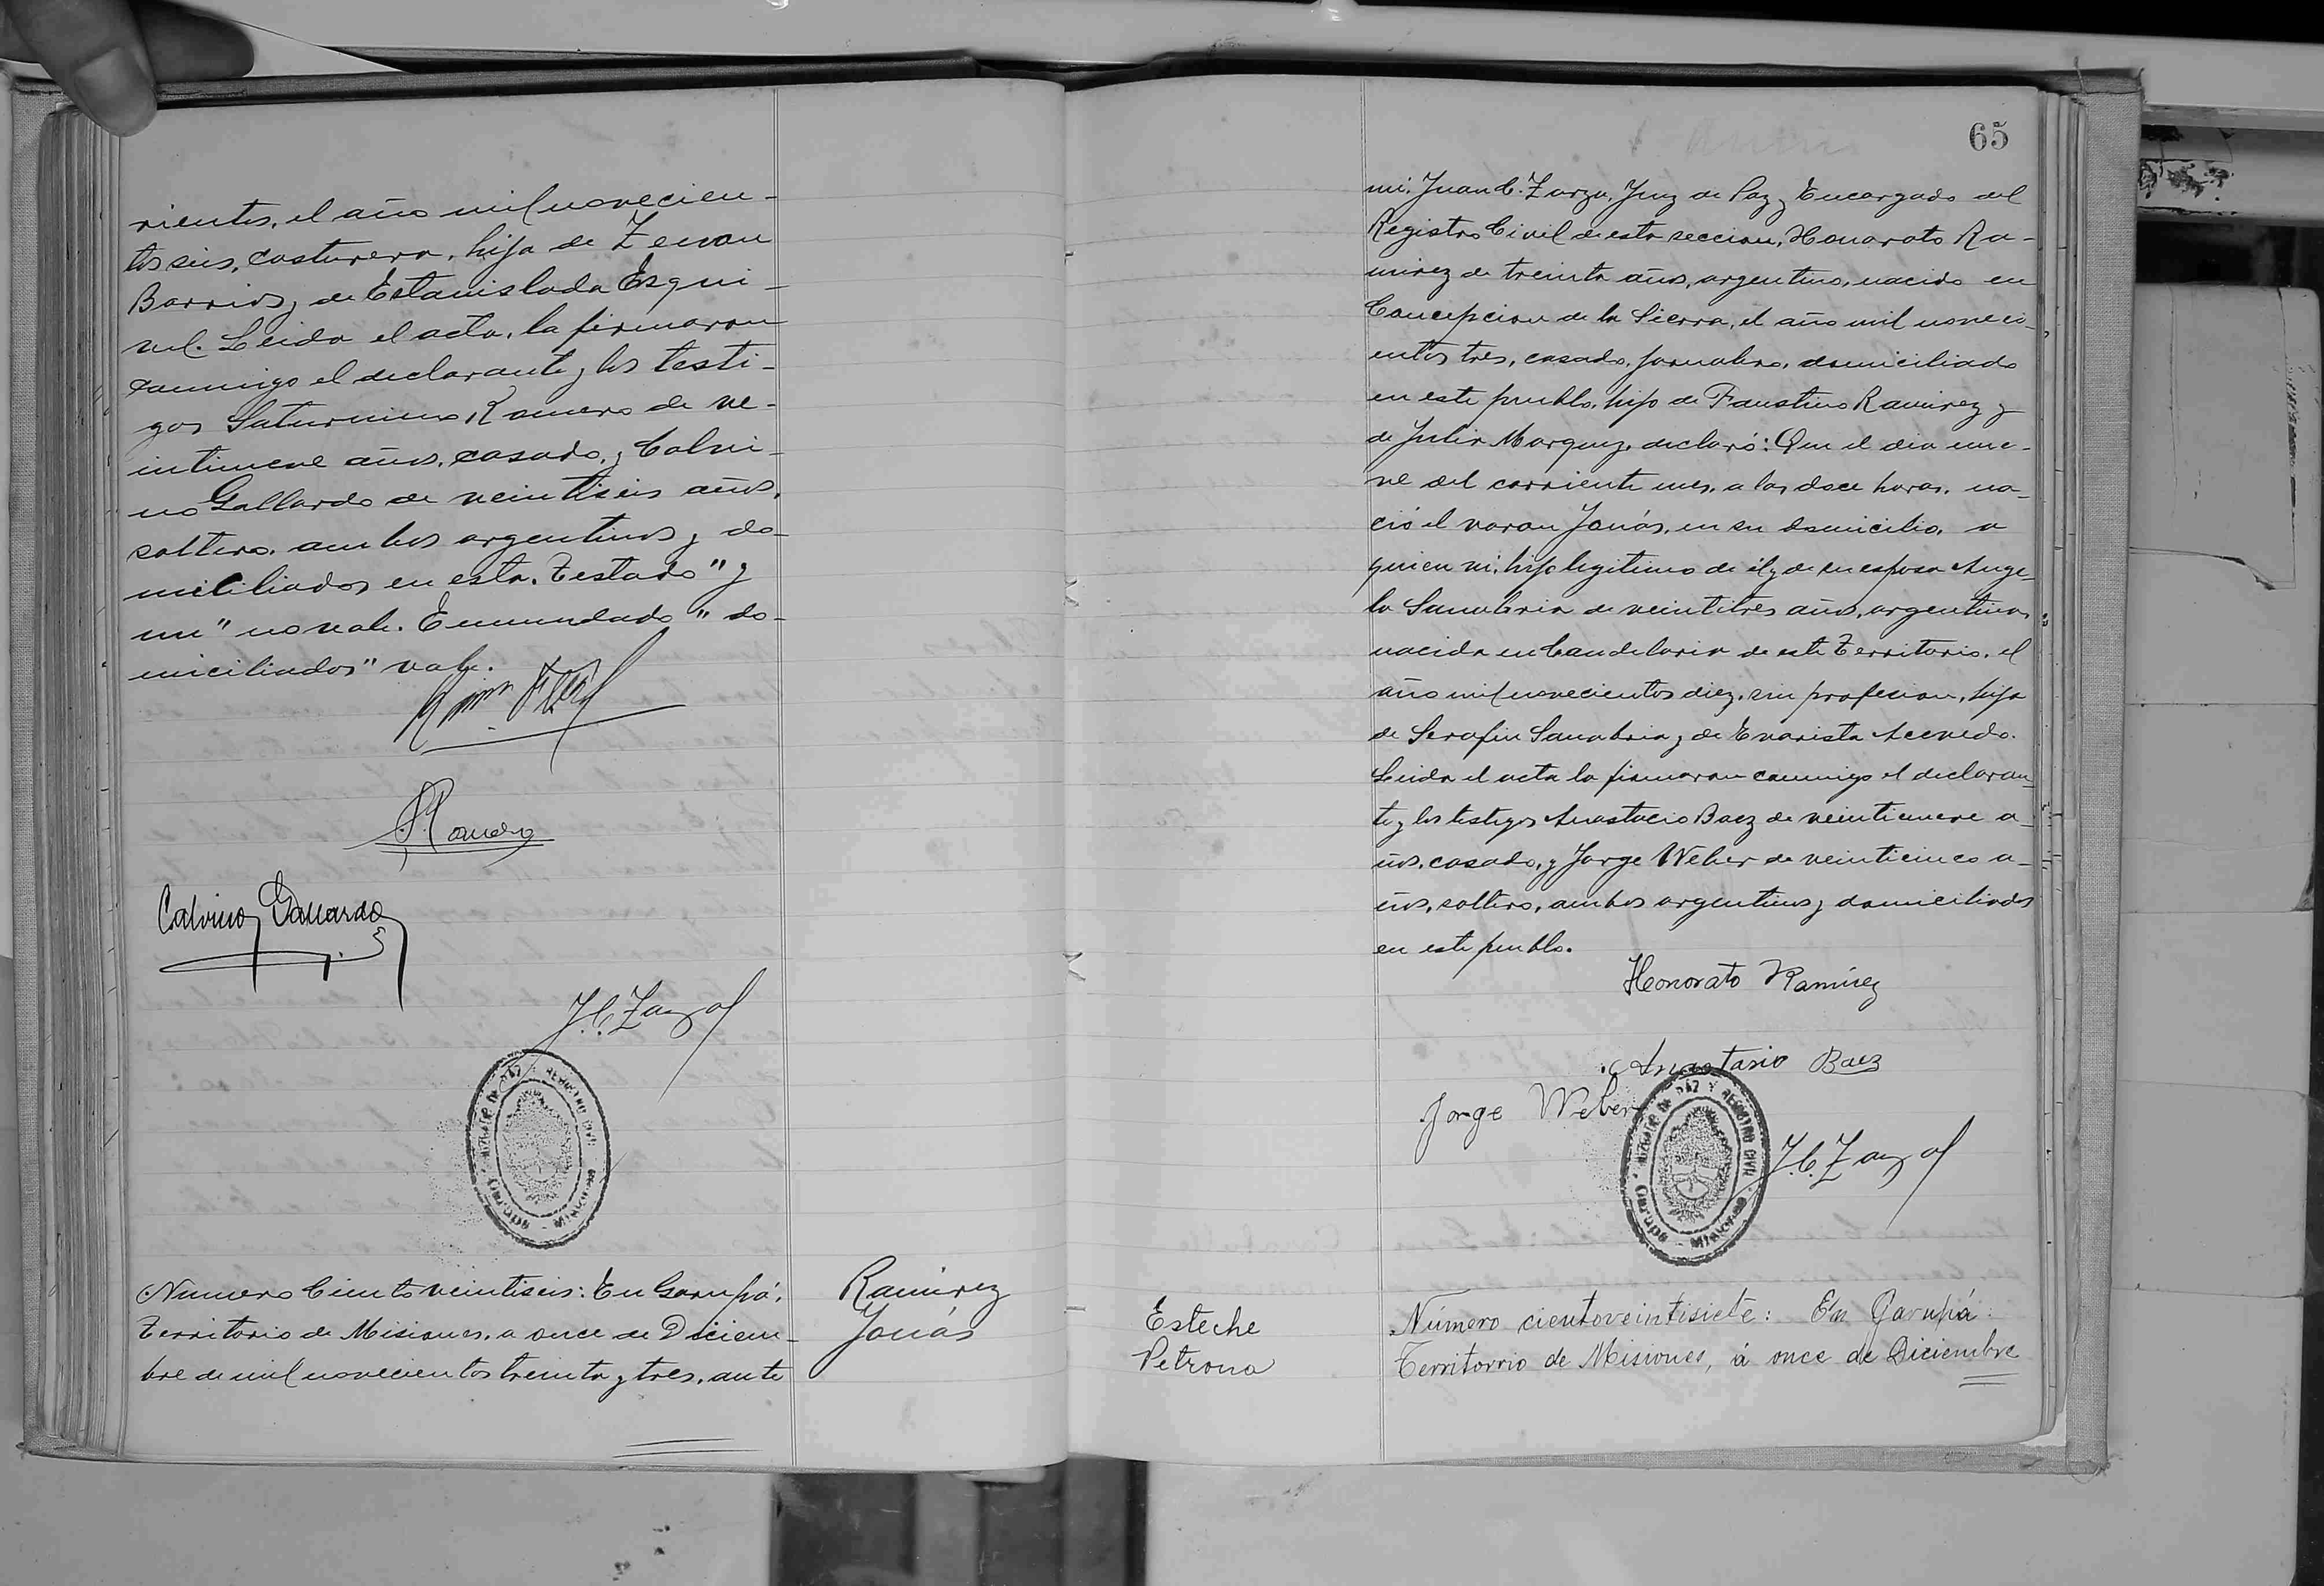 rientes, el año mil novecien-
tos seis, costurera, hija de Zenon
Barrios y de Estanislada Esqui-
vel. Leida el acta, la firmaron
conmigo el declarante y los testi-
gos Saturnino Romero de ve-
intinueve años, casado, y Calvi-
no Gallardo de veintiseis años,
soltero, ambos argentinos y do-
miciliados en esta. Testado "y
un" no vale. Enmendado "do-
miciliados" vale.
S. Romero
Calvino Gallardo
J.C. Zarza
JUZGADO DE PAZ Y REGISTRO CIVIL
Garupá - Misiones
Numero Ciento veintiseis: En Garupá,
Territorio de Misiones, a once de Diciem-
bre de mil novecientos treinta y tres, ante
Ramirez
Jonás
65
mi, Juan C. Zarza, Juez de Paz y Encargado del
Registro Civil de esta seccion, Honorato Ra-
mirez de treinta años, argentino, nacido en
Concepcion de la Sierra, el año mil noveci-
entos tres, casado, jornalero, domiciliado
en este pueblo, hijo de Faustino Ramirez y
de Julia Marquez, declaró: Que el dia nue-
ve del corriente mes, a las doce horas, na-
ció el varon Jonás, en su domicilio, a
quien vi, hijo legitimo de él y de su esposa Ange-
la Sanabria de veintitres años, argentina,
nacida en Candelaria de este Territorio, el
año mil novecientos diez, sin profesion, hija
de Serafin Sanabria y de Evarista Acevedo.
Leida el acta la firmaron conmigo el declaran-
te y los testigos Anastacio Baez de veintinueve a-
ños, casado, y Jorge Weber de veinticinco a-
ños, soltero, ambos argentinos y domiciliados
en este pueblo.
Honorato Ramírez
Anastasio Baez
Jorge Weber
JUZGADO DE PAZ Y REGISTRO CIVIL
Garupá - Misiones
J.C. Zarza
Esteche
Petrona
Número cientoveintisiete: En Garupá:
Territorrio de Misiones, á once de Diciembre